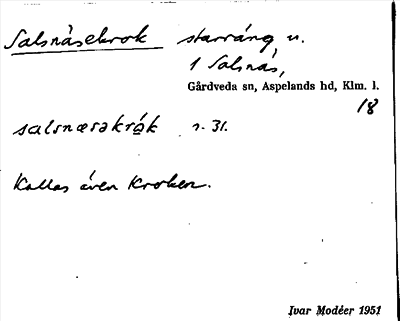 Salsnäsekrok starräng u.
1 Salsnäs,
Gårdveda sn, Aspelands hd, Klm. l.
18
salsnæsəkròk s. 31.
Kallas även Kroken.
Ivar Modéer 1951